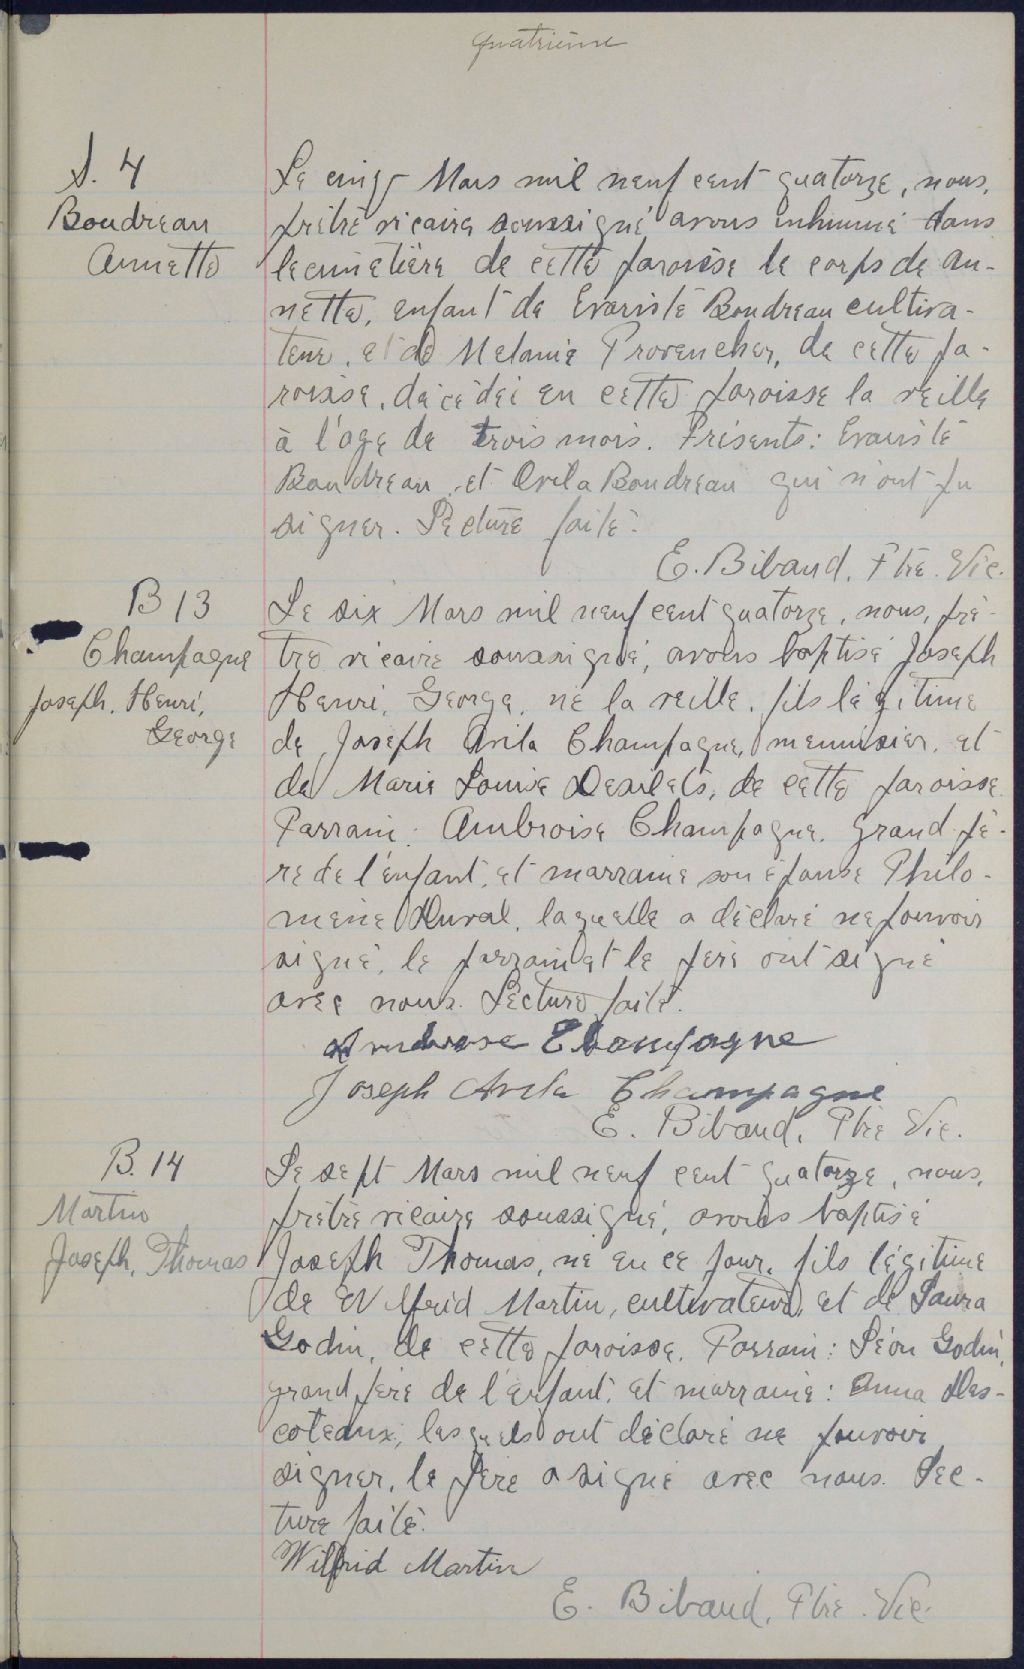 quatrième
S. 4
Boudreau
Annette
Le cinq Mars mil neuf cent quatorze, nous,
prêtre vicaire soussigné avons inhumé dans
le cimetière de cette paroisse le corps de An-
nette, enfant de Evariste Boudreau cultiva-
teur, et de Melanie Provencher, de cette pa-
roisse, décédée en cette paroisse la veille
à l'age de trois mois. Présents: Evariste
Boudreau et Ovila Boudreau qui n'ont pu
signer. Lecture faite.
E. Biband, Ptre. Vic.
B 13
Champagne
Joseph, Henri,
George
Le six Mars mil neuf cent quatorze, nous, prê-
tre vicaire soussigné, avons baptisé Joseph
Henri, George, né la veille, fils légitime
de Joseph Avila Champagne, menuisier, et
de Marie Louise Desilets, de cette paroisse.
Parrain: Ambroise Champagne, grand-pè-
re de l'enfant, et marraine son épouse Philo-
mène Duval, laquelle a déclaré ne pouvoir
signé, le parrain et le père ont signé
avec nous. Lecture faite.
Ambroise Champagne
Joseph Avila Champagne
E. Biband, Ptre Vic.
B. 14
Martin
Joseph, Thomas
Le sept Mars mil neuf cent quatorze, nous,
prêtre vicaire soussigné, avons baptisé
Joseph Thomas, né en ce jour, fils légitime
de Wilfrid Martin, cultivateur, et de Laura
Godin, de cette paroisse. Parrain: Léon Godin,
grand père de l'enfant, et marraine: Anna Des-
coteaux, lesquels ont déclaré ne pouvoir
signer, le père a signé avec nous. Lec-
ture faite.
Wilfrid Martin
E. Biband, Ptre. Vic.